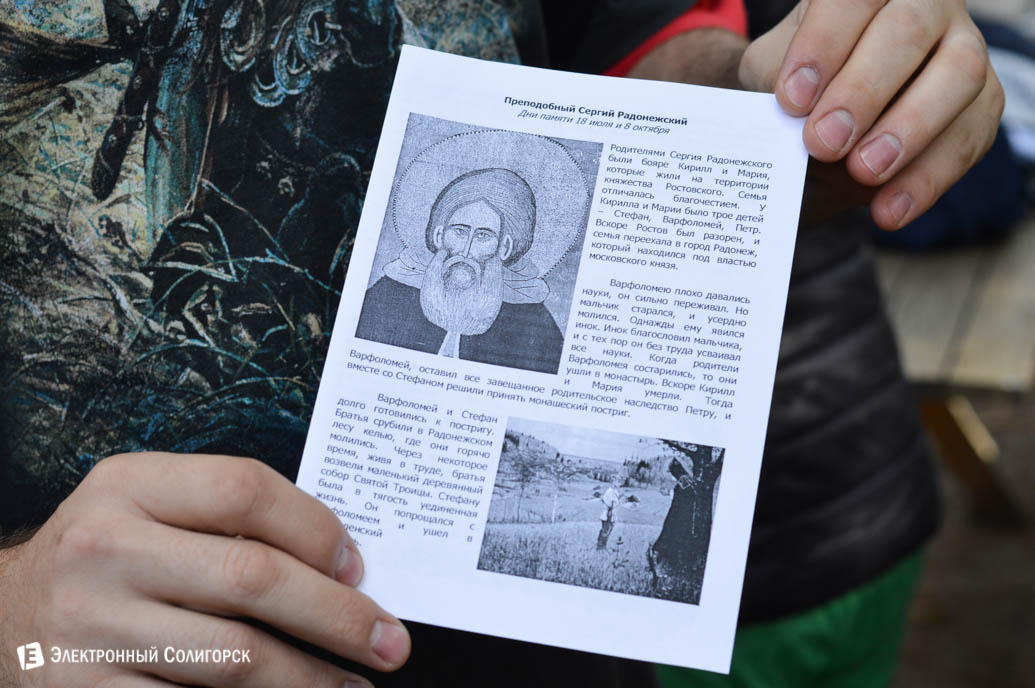 Преподобный Сергий Радонежский
Дни памяти 18 июля и 8 октября
Родителями Сергия Радонежского
были бояре Кирилл и Мария,
которые жили на территории
княжества Ростовского. Семья
отличалась благочестием. У
Кирилла и Марии было трое детей
– Стефан, Варфоломей, Петр.
Вскоре Ростов был разорен, и
семья переехала в город Радонеж,
который находился под властью
московского князя.
Варфоломею плохо давались
науки, он сильно переживал. Но
мальчик старался, и усердно
молился. Однажды ему явился
инок. Инок благословил мальчика,
и с тех пор он без труда усваивал
все науки. Когда родители
Варфоломея состарились, то они
ушли в монастырь. Вскоре Кирилл
и Мария умерли. Тогда
Варфоломей, оставил все завещанное родительское наследство Петру, и
вместе со Стефаном решили принять монашеский постриг.
Варфоломей и Стефан
долго готовились к постригу.
Братья срубили в Радонежском
лесу келью, где они горячо
молились. Через некоторое
время, живя в труде, братья
возвели маленький деревянный
собор Святой Троицы. Стефану
была в тягость уединенная
жизнь. Он попрощался с
и ушел в
Электронный Солигорск